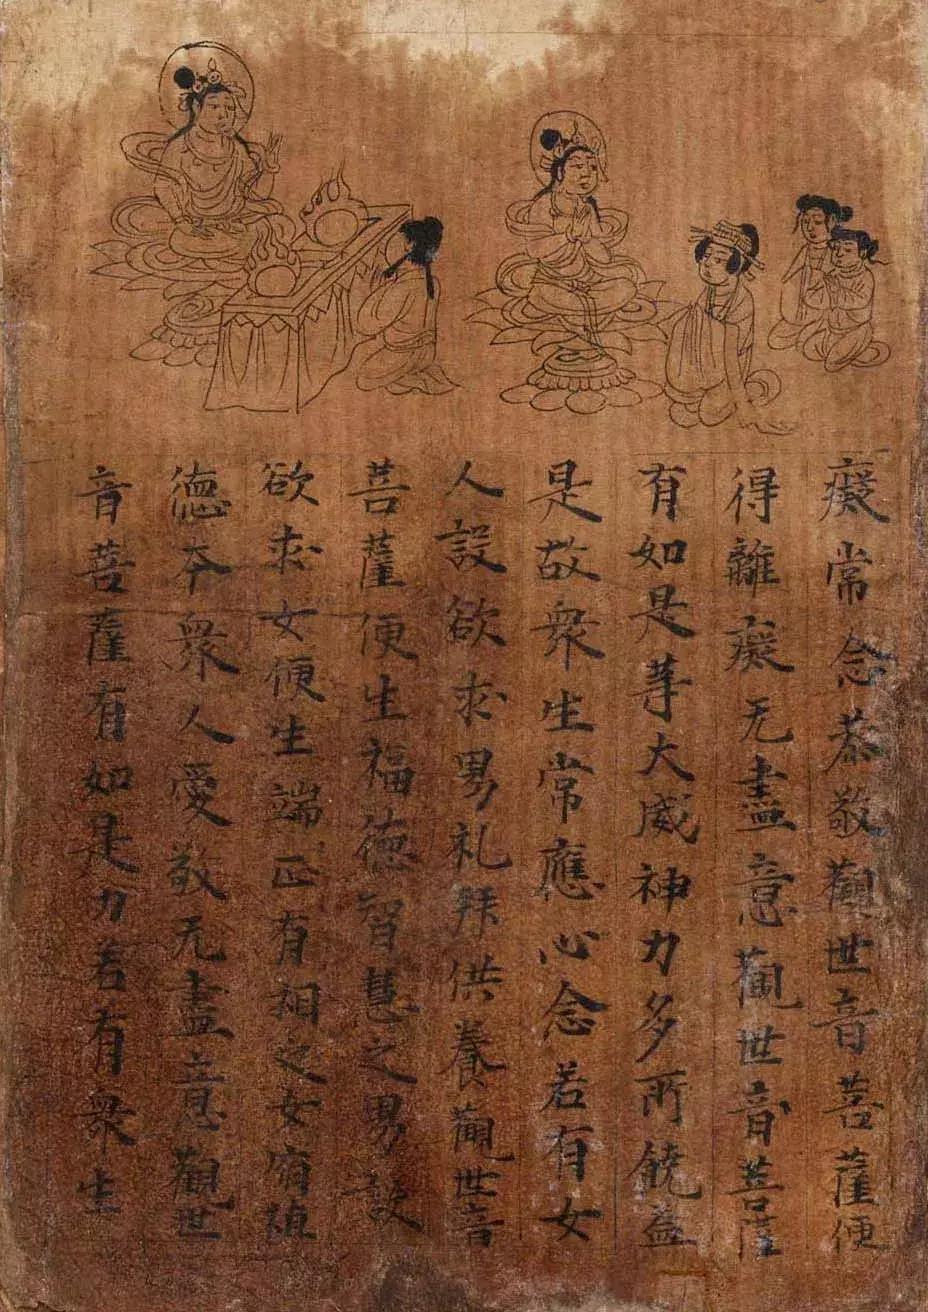 癡常念恭敬觀世音菩薩便
得離癡无盡意觀世音菩薩
有如是等大威神力多所饒益
是故衆生常應心念若有女
人設欲求男礼拜供養觀世音
菩薩便生福德智慧之男設
欲求女便生端正有相之女宿殖
德本衆人愛敬无盡意觀世
音菩薩有如是力若有衆生